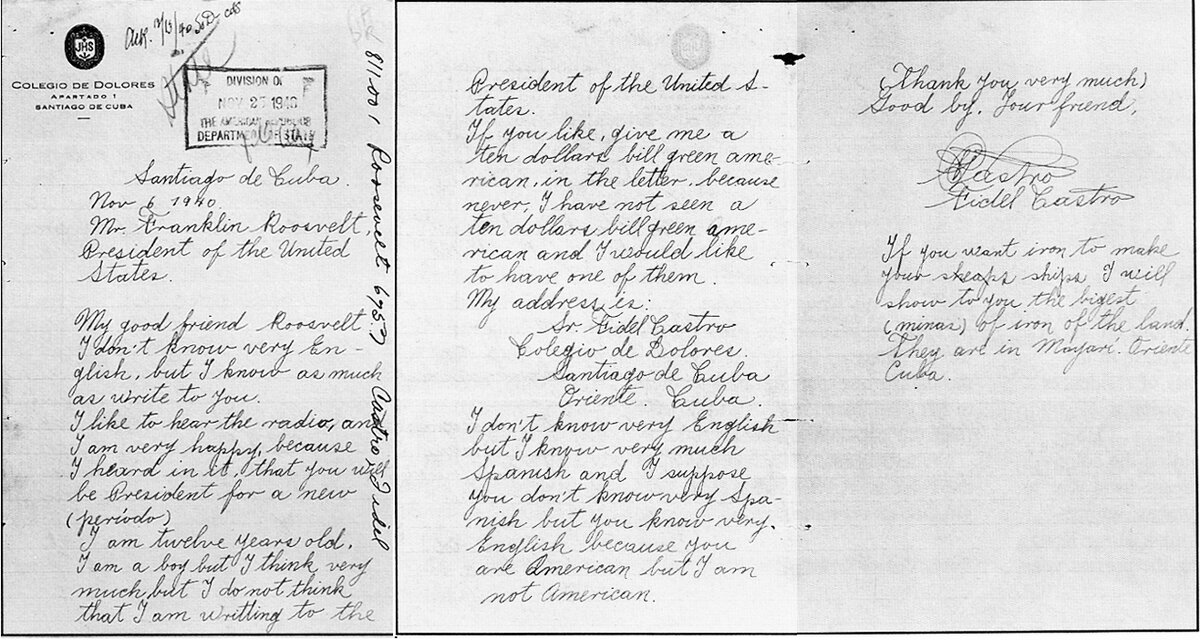 JHS
COLEGIO DE DOLORES
APARTADO 1
SANTIAGO DE CUBA
State
DIVISION OF
NOV 25 1940
THE AMERICAN REPUBLICS
DEPARTMENT OF STATE
811.001 Roosevelt
Castro, Fidel
Santiago de Cuba.
Nov 6 1940.
Mr. Franklin Roosvelt,
President of the United
States.
My good friend Roosvelt
I don't know very En-
glish, but I know as much
as write to you.
I like to hear the radio, and
I am very happy, because
I heard in it, that you will
be President for a new
(período)
I am twelve years old.
I am a boy but I think very
much but I do not think
that I am writting to the
President of the United S-
tates.
If you like, give me a
ten dollars bill green ame-
rican, in the letter, because
never, I have not seen a
ten dollars bill green ame-
rican and I would like
to have one of them.
My address is:
Sr. Fidel Castro
Colegio de Dolores.
Santiago de Cuba
Oriente. Cuba.
I don't know very English
but I know very much
Spanish and I suppose
you don't know very Spa-
nish but you know very
English because you
are American but I am
not American.
(Thank you very much)
Good by. Your friend,
Castro
Fidel Castro
If you want iron to make
your sheaps ships I will
show to you the bigest
(minas) of iron of the land.
They are in Mayarí. Oriente
Cuba.